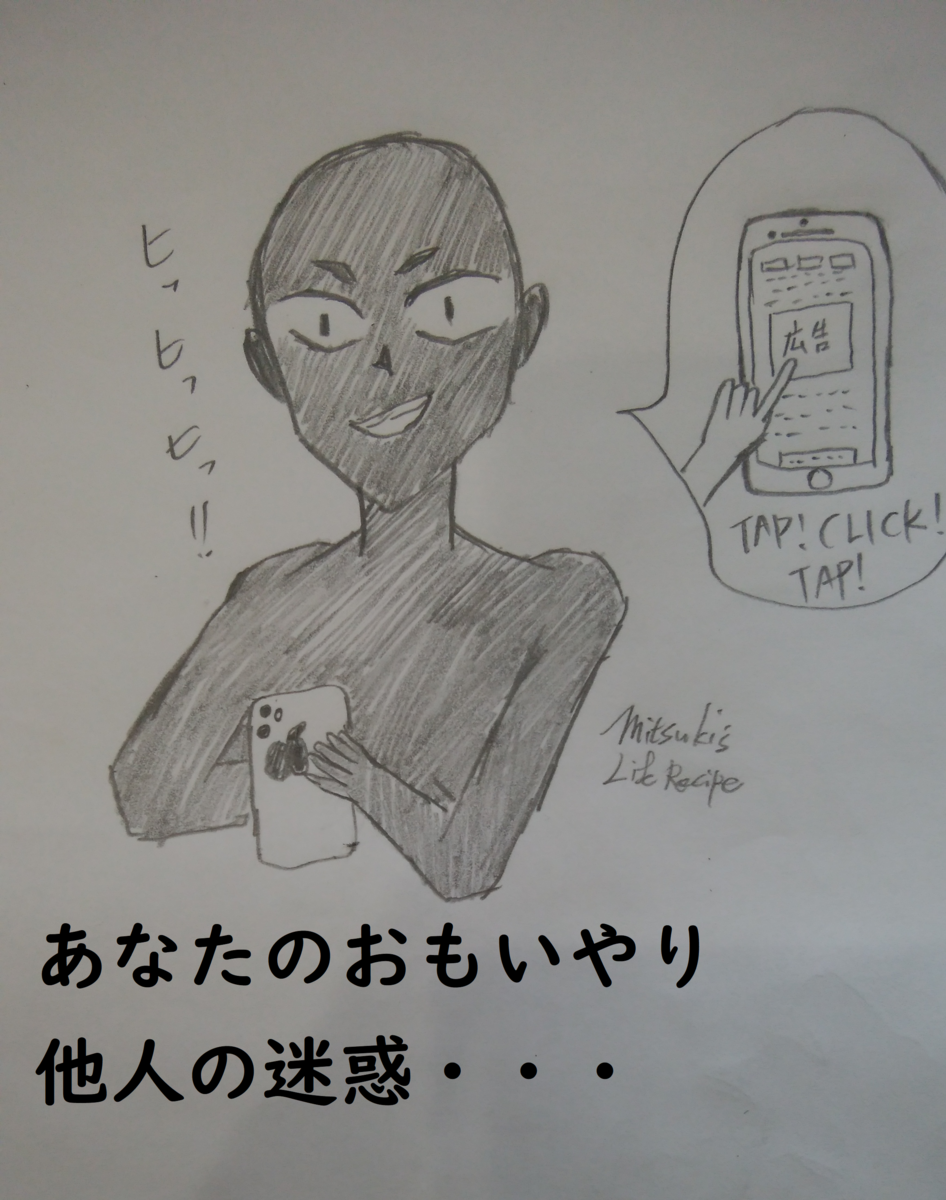 ヒッ
ヒッ
ヒッ
!!
広告
TAP! CLICK!
TAP!
Mitsuki's
Life Recipe
あなたのおもいやり
他人の迷惑・・・